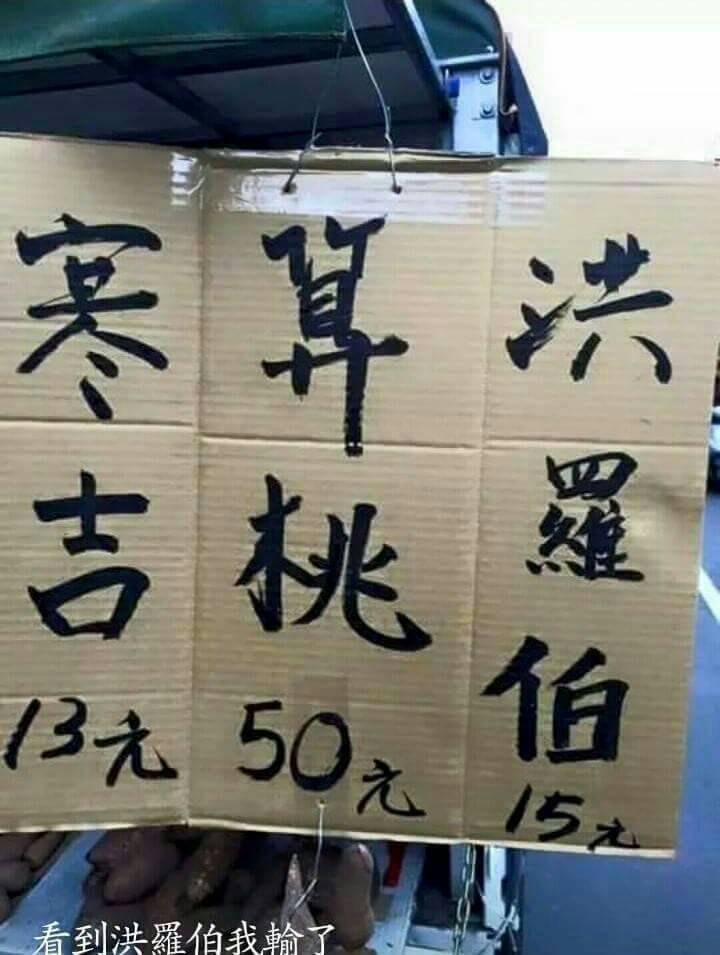 洪羅伯
15元
算桃
50元
寒吉
13元
看到洪羅伯我輸了